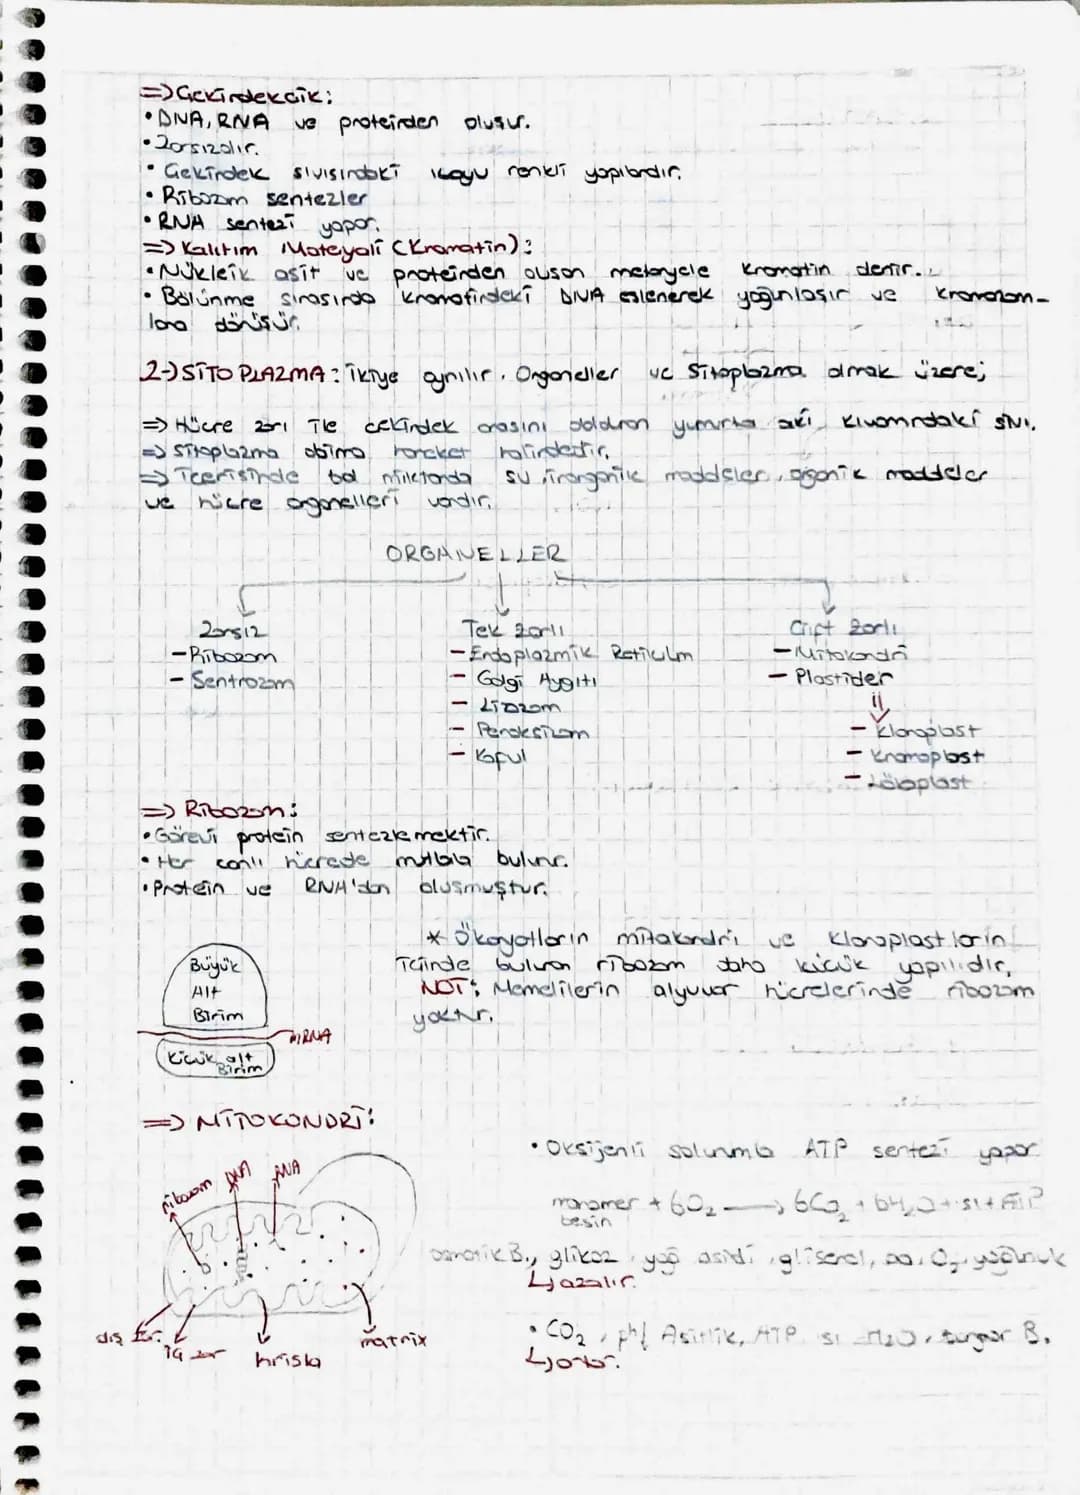 => Çekirdekçik:
• DNA, RNA ve proteinden oluşur.
• Zarsızdır.
• Çekirdek sıvısındaki koyu renkli yapılardır.
• Ribozom sentezler
• RNA sentezi yapar.
=> Kalıtım Materyali (Kromatin):
• Nükleik asit ve proteinden oluşan materyale kromatin denir.
• Bölünme sırasında kromatindeki DNA eşlenerek yoğunlaşır ve kromozom-
lara dönüşür.
2-) SİTOPLAZMA: İkiye ayrılır. Organeller ve Sitoplazma olmak üzere;
=> Hücre zarı ile çekirdek arasını dolduran yumurta akı kıvamındaki sıvı.
=> Sitoplazma daima hareket halindedir.
=> İçerisinde bol miktarda su, inorganik maddeler, organik maddeler
ve hücre organelleri vardır.
ORGANELLER
Zarsız
- Ribozom
- Sentrozom
Tek zarlı
- Endoplazmik Retikulm
- Golgi Aygıtı
- Lizozom
- Peroksizom
- Koful
Çift zarlı
- Mitokondri
- Plastider
- Kloroplast
- Kromoplast
- Lökoplast
=> Ribozom:
• Görevi protein sentezlemektir.
• Her canlı hücrede mutlaka bulunur.
• Protein ve RNA'dan oluşmuştur.
* Ökaryotların mitokondri ve kloroplastların
içinde bulunan ribozom daha küçük yapılıdır.
NOT: Memelilerin alyuvar hücrelerinde ribozom
yoktur.
Büyük
Alt
Birim
mRNA
Küçük alt
Birim
=> MİTOKONDRİ:
• Oksijenli solunumla ATP sentezi yapar
monomer + 6O₂ → 6CO₂ + 6H₂O + ısı + ATP
besin
osmotik B., glikoz, yağ asidi, gliserol, aa, O₂, yoğunluk
↳ azalır.
• CO₂, pH Asitlik, ATP ısı H₂O, turgor B.
↳ artar.
ribozom
DNA
RNA
dış zar
iç zar
krista
matrix